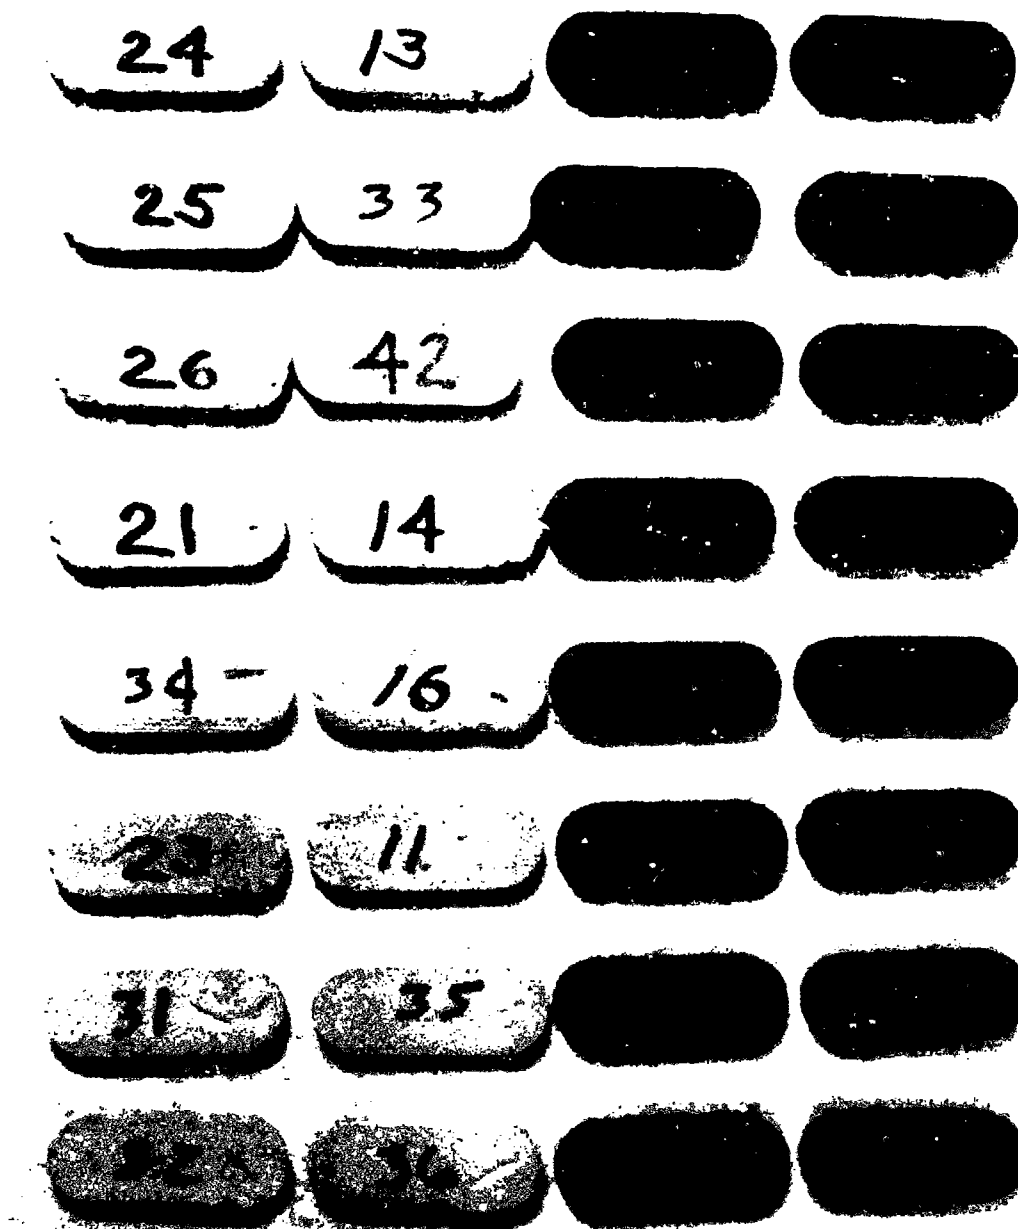 24 13
25 33
26 42
21 14
34 16
23 11
31 35
36